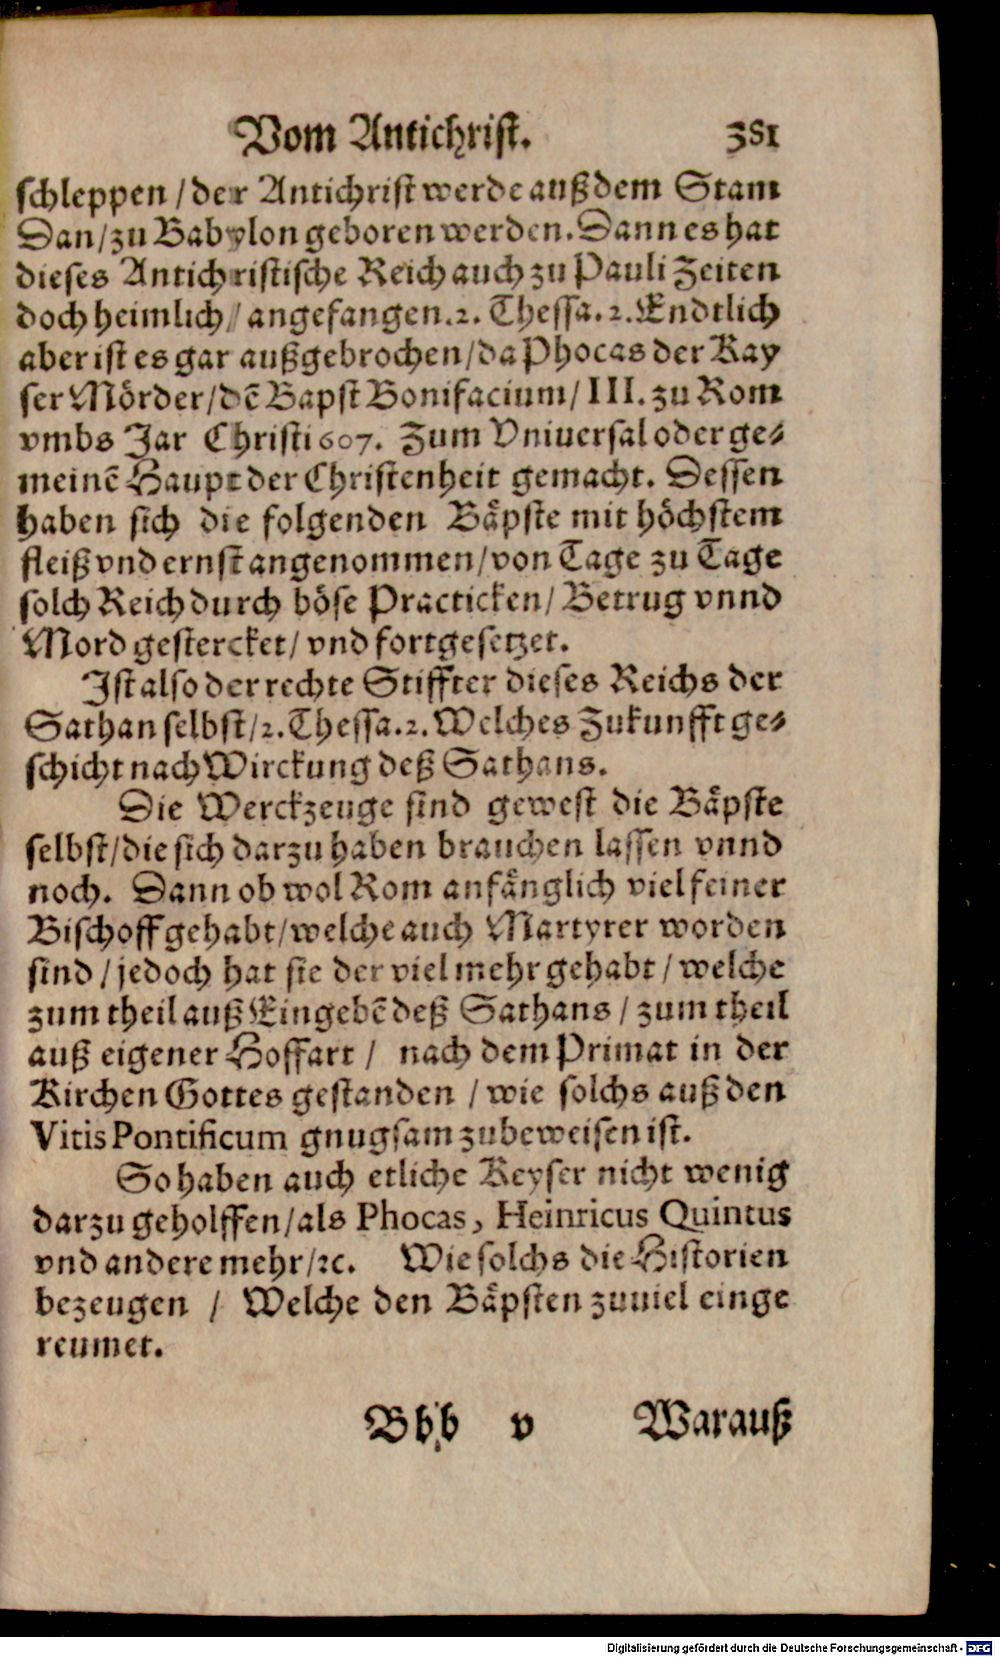 Vom Antichrist. 381
schleppen / der Antichrist werde außdem Stam
Dan / zu Babylon geboren werden. Dann es hat
dieses Antichristische Reich auch zu Pauli Zeiten
doch heimlich / angefangen. 2. Thessa. 2. Endtlich
aber ist es gar außgebrochen / da Phocas der Kay
ser Mörder / dẽ Bapst Bonifacium / III. zu Rom
vmbs Jar Christi 607. Zum Vniuersal oder ge⸗
meinẽ Haupt der Christenheit gemacht. Dessen
haben sich die folgenden Bäpste mit höchstem
fleiß vnd ernst angenommen / von Tage zu Tage
solch Reich durch böse Practicken / Betrug vnnd
Mord gestercket / vnd fortgesetzet.
Ist also der rechte Stiffter dieses Reichs der
Sathan selbst / 2. Thessa. 2. Welches Zukunfft ge⸗
schicht nach Wirckung deß Sathans.
Die Werckzeuge sind gewest die Bäpste
selbst / die sich darzu haben brauchen lassen vnnd
noch. Dann ob wol Rom anfänglich viel feiner
Bischoff gehabt / welche auch Martyrer worden
sind / jedoch hat sie der viel mehr gehabt / welche
zum theil auß Eingebẽ deß Sathans / zum theil
auß eigener Hoffart / nach dem Primat in der
Kirchen Gottes gestanden / wie solchs auß den
Vitis Pontificum gnugsam zubeweisen ist.
So haben auch etliche Keyser nicht wenig
darzu geholffen / als Phocas, Heinricus Quintus
vnd andere mehr / ꝛc. Wie solchs die Historien
bezeugen / Welche den Bäpsten zuuiel einge
reumet.
Bbb v Warauß
Digitalisierung gefördert durch die Deutsche Forschungsgemeinschaft - DFG